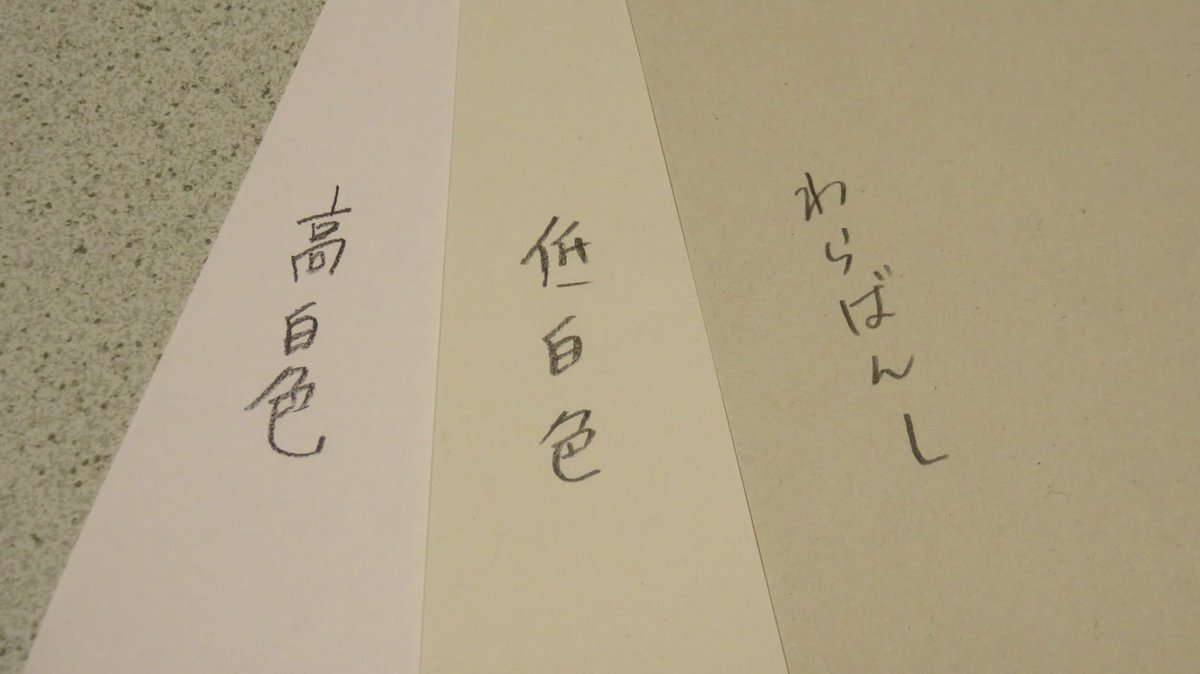 高白色
低白色
わらばんし